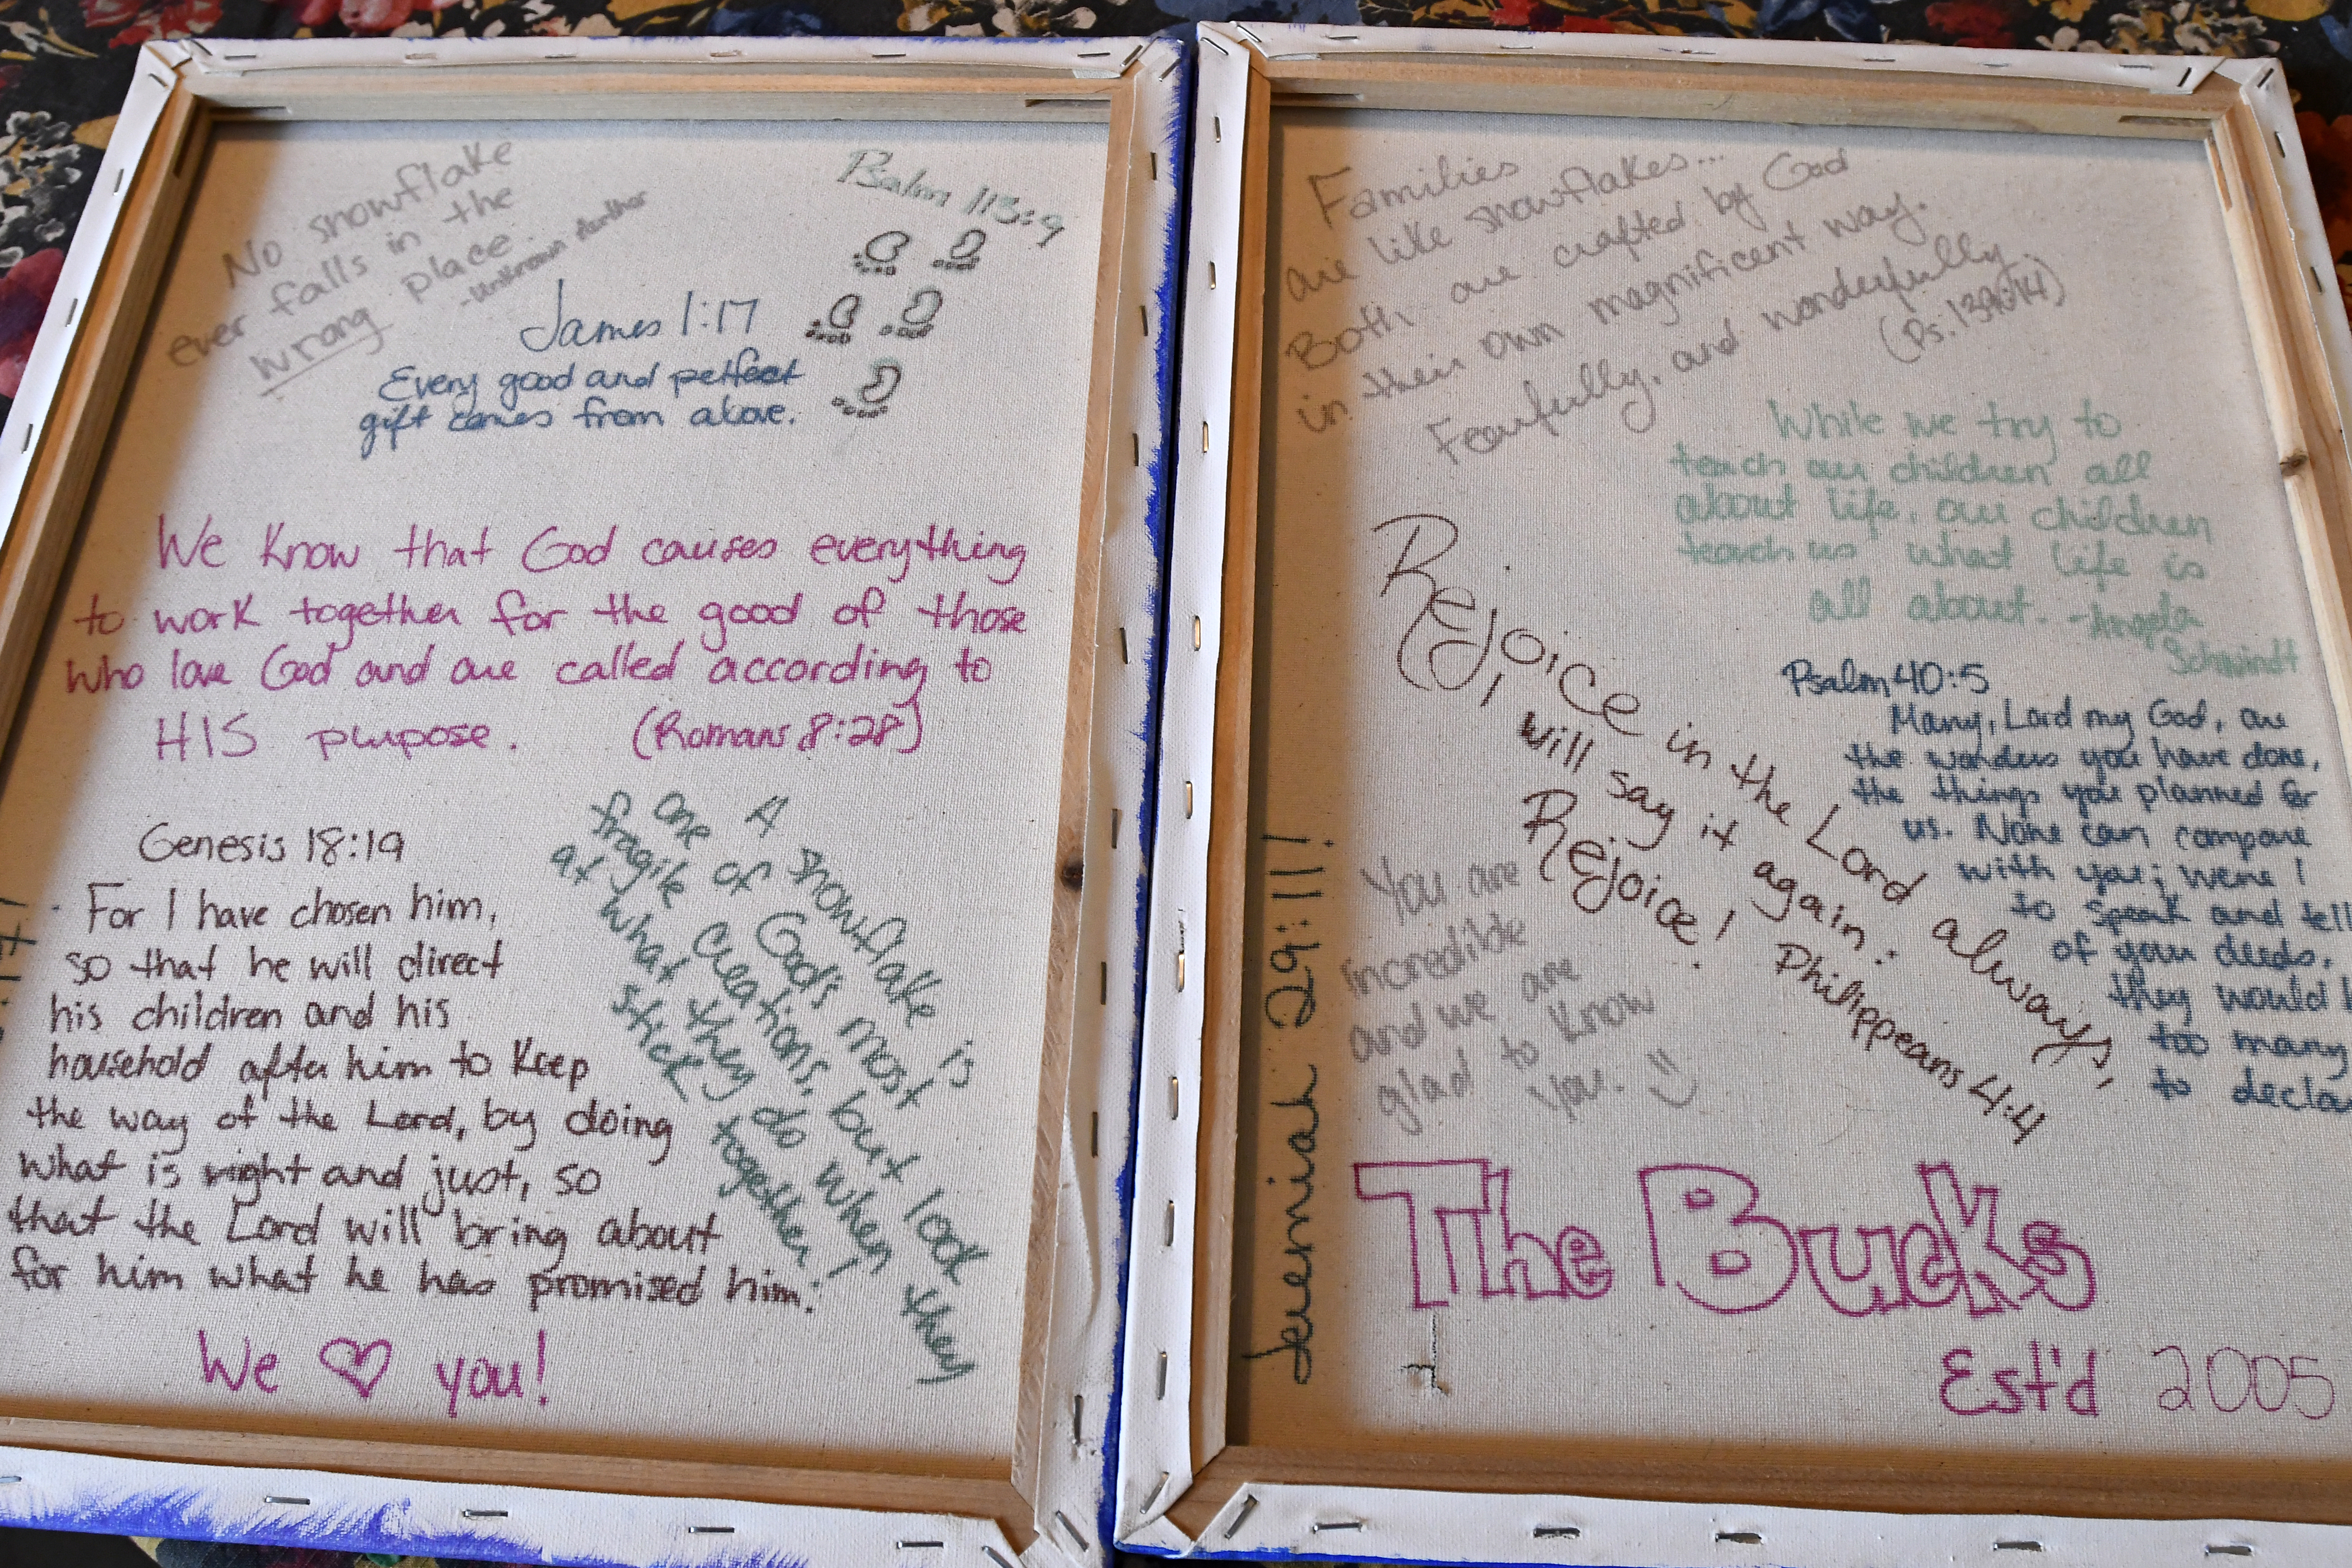 No snowflake
ever falls in the
wrong place.
-Unknown Author
Psalm 113:9
James 1:17
Every good and perfect
gift comes from above.
We know that God causes everything
to work together for the good of those
who love God and are called according to
HIS purpose. (Romans 8:28)
Genesis 18:19
For I have chosen him,
so that he will direct
his children and his
household after him to keep
the way of the Lord, by doing
what is right and just, so
that the Lord will bring about
for him what he has promised him.
A snowflake is
one of God's most
fragile creations, but look
at what they do when they
stick together!
We ♡ you!
Families
are like snowflakes...
Both are crafted by God
in their own magnificent way.
Fearfully, and wonderfully
While we try to
teach our children all
about life, our children
teach us what life is
all about. -Angela
Schwindt
Rejoice in the Lord always,
I will say it again:
Rejoice! Philippeans 4:4
Psalm 40:5
Many, Lord my God, are
the wonders you have done,
the things you planned for
us. None can compare
with you; were I
to speak and tell
of your deeds,
they would
too many
to
You are
incredible
and we are
glad to know
you.
Jeremiah 29:11!
The Bucks
Est'd 2005